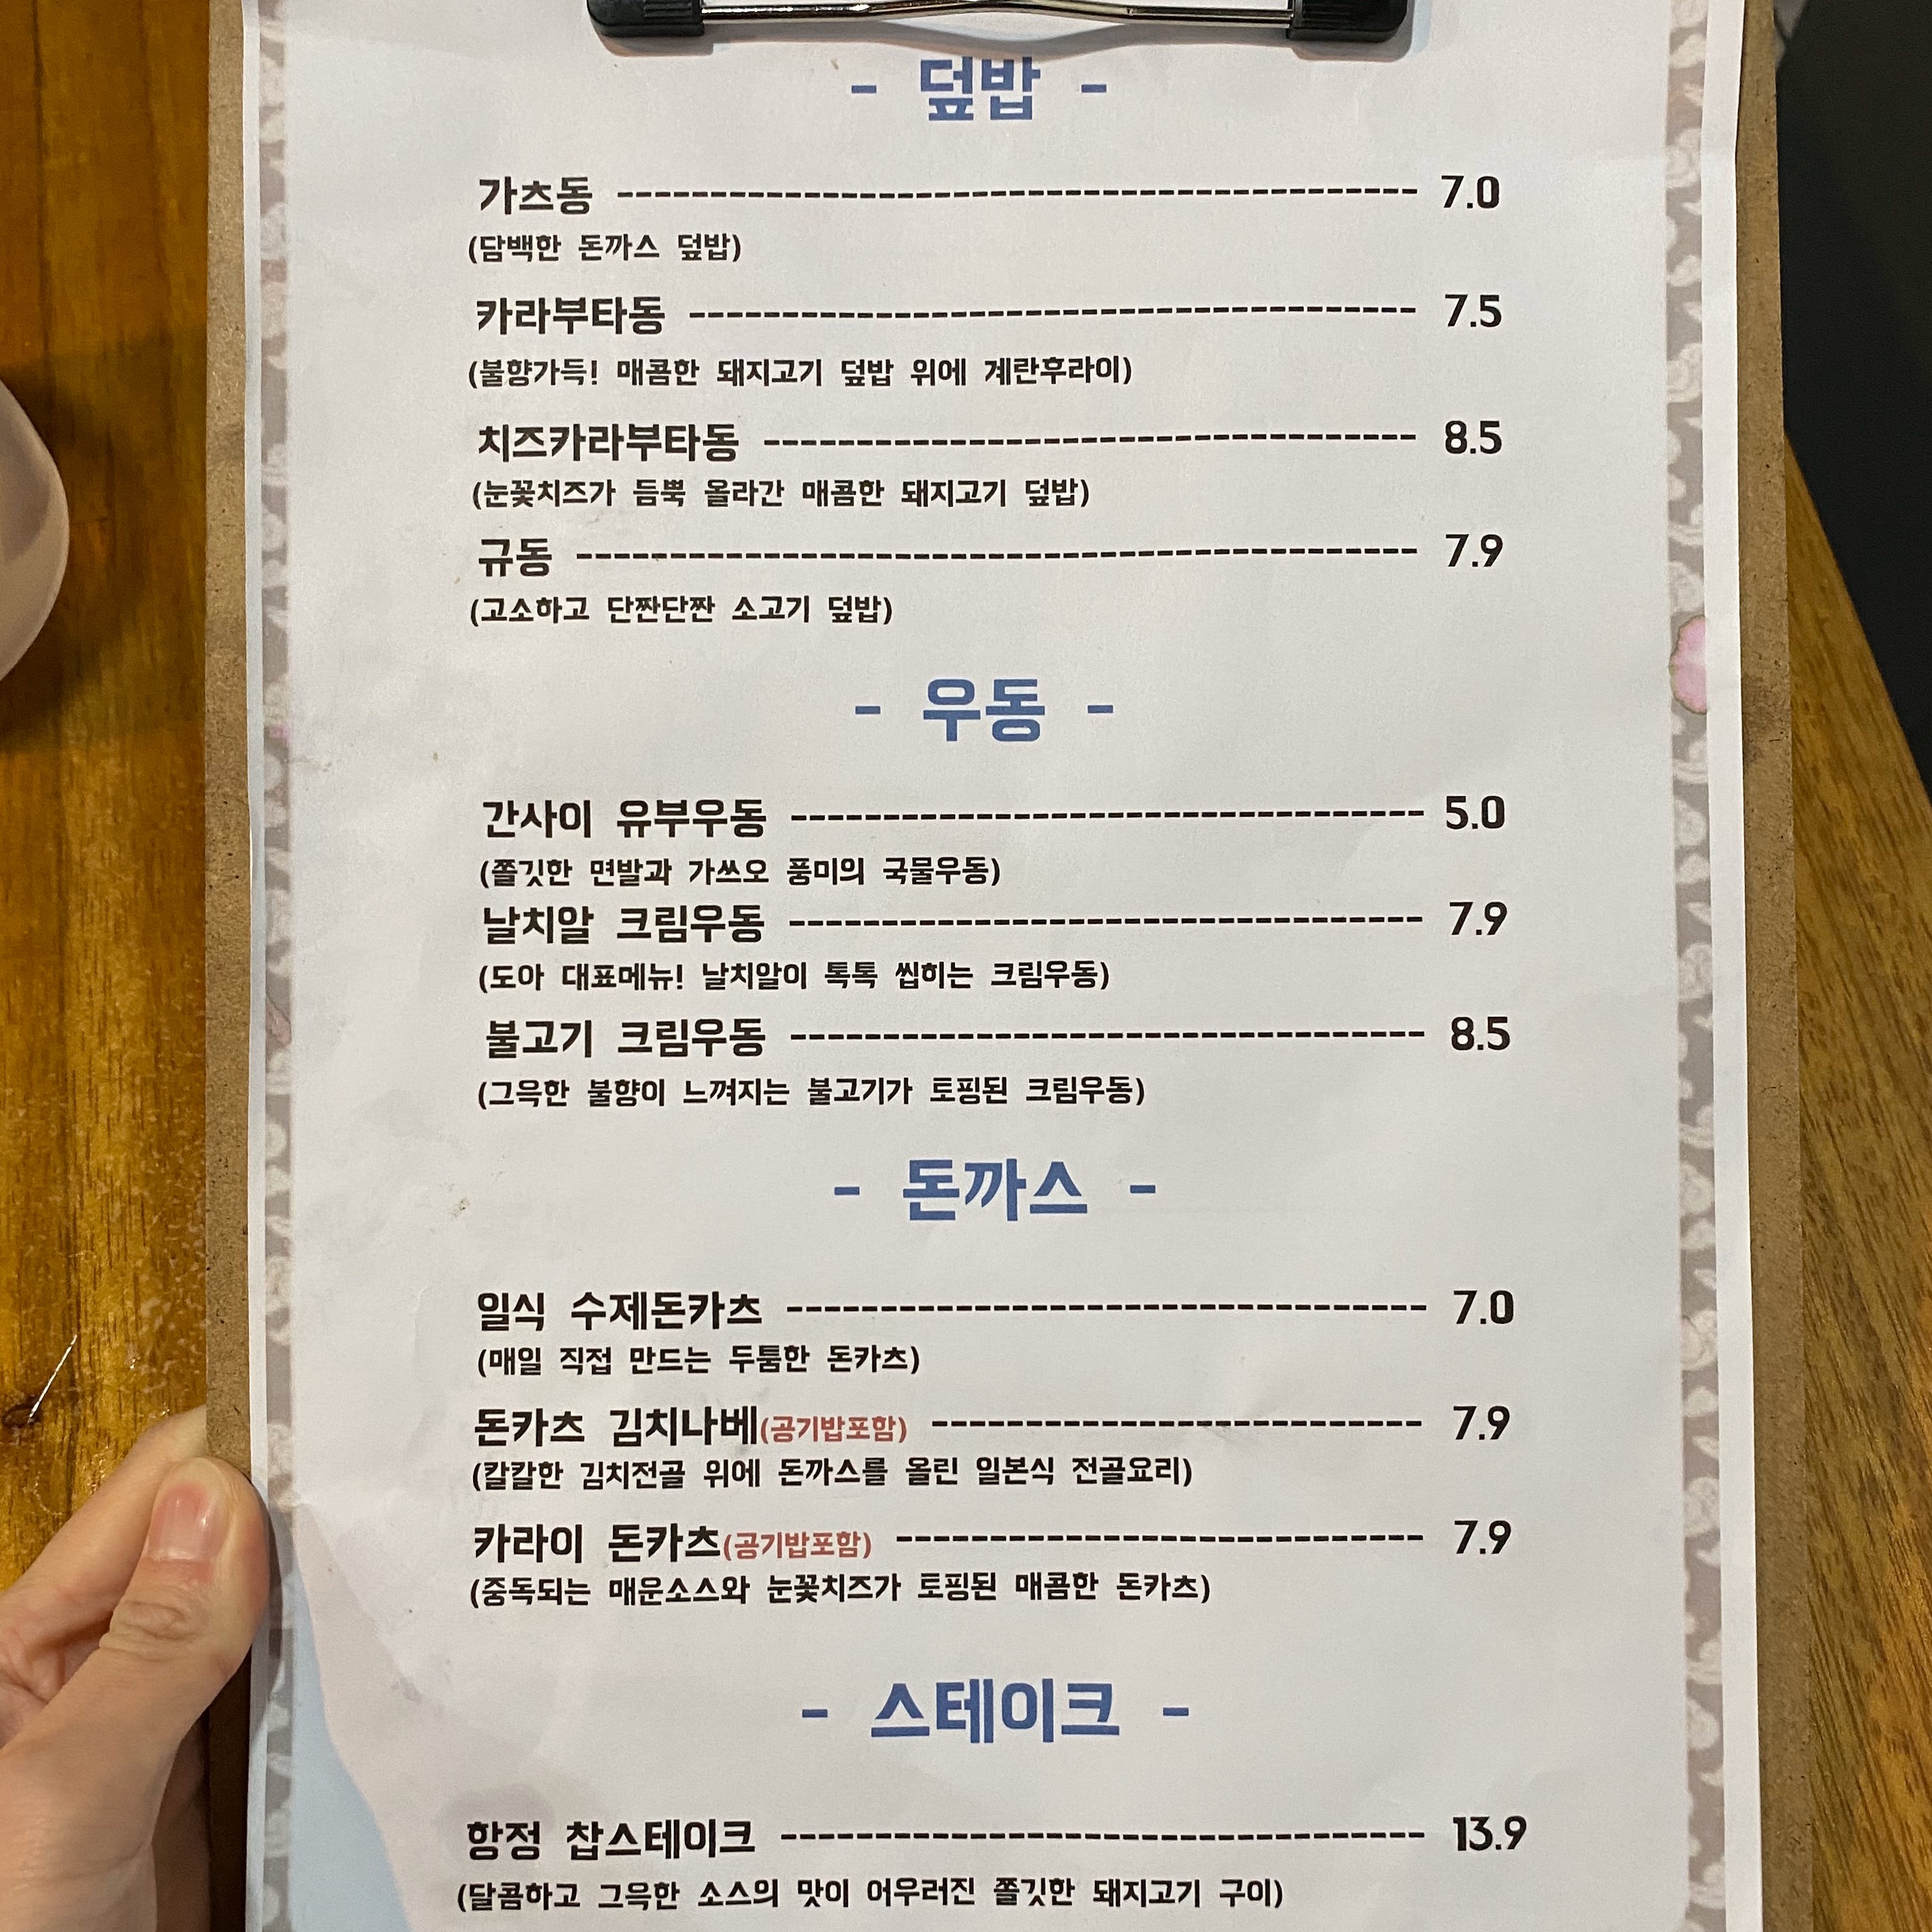 - 덮밥 -
가츠동 ------------------------------------------- 7.0
(담백한 돈까스 덮밥)
카라부타동 --------------------------------------- 7.5
(불향가득! 매콤한 돼지고기 덮밥 위에 계란후라이)
치즈카라부타동 ----------------------------------- 8.5
(눈꽃치즈가 듬뿍 올라간 매콤한 돼지고기 덮밥)
규동 --------------------------------------------- 7.9
(고소하고 단짠단짠 소고기 덮밥)
- 우동 -
간사이 유부우동 ---------------------------------- 5.0
(쫄깃한 면발과 가쓰오 풍미의 국물우동)
날치알 크림우동 ---------------------------------- 7.9
(도아 대표메뉴! 날치알이 톡톡 씹히는 크림우동)
불고기 크림우동 ---------------------------------- 8.5
(그윽한 불향이 느껴지는 불고기가 토핑된 크림우동)
- 돈까스 -
일식 수제돈카츠 ---------------------------------- 7.0
(매일 직접 만드는 두툼한 돈카츠)
돈카츠 김치나베(공기밥포함) -------------------------- 7.9
(칼칼한 김치전골 위에 돈까스를 올린 일본식 전골요리)
카라이 돈카츠(공기밥포함) ---------------------------- 7.9
(중독되는 매운소스와 눈꽃치즈가 토핑된 매콤한 돈카츠)
- 스테이크 -
항정 찹스테이크 ---------------------------------- 13.9
(달콤하고 그윽한 소스의 맛이 어우러진 쫄깃한 돼지고기 구이)